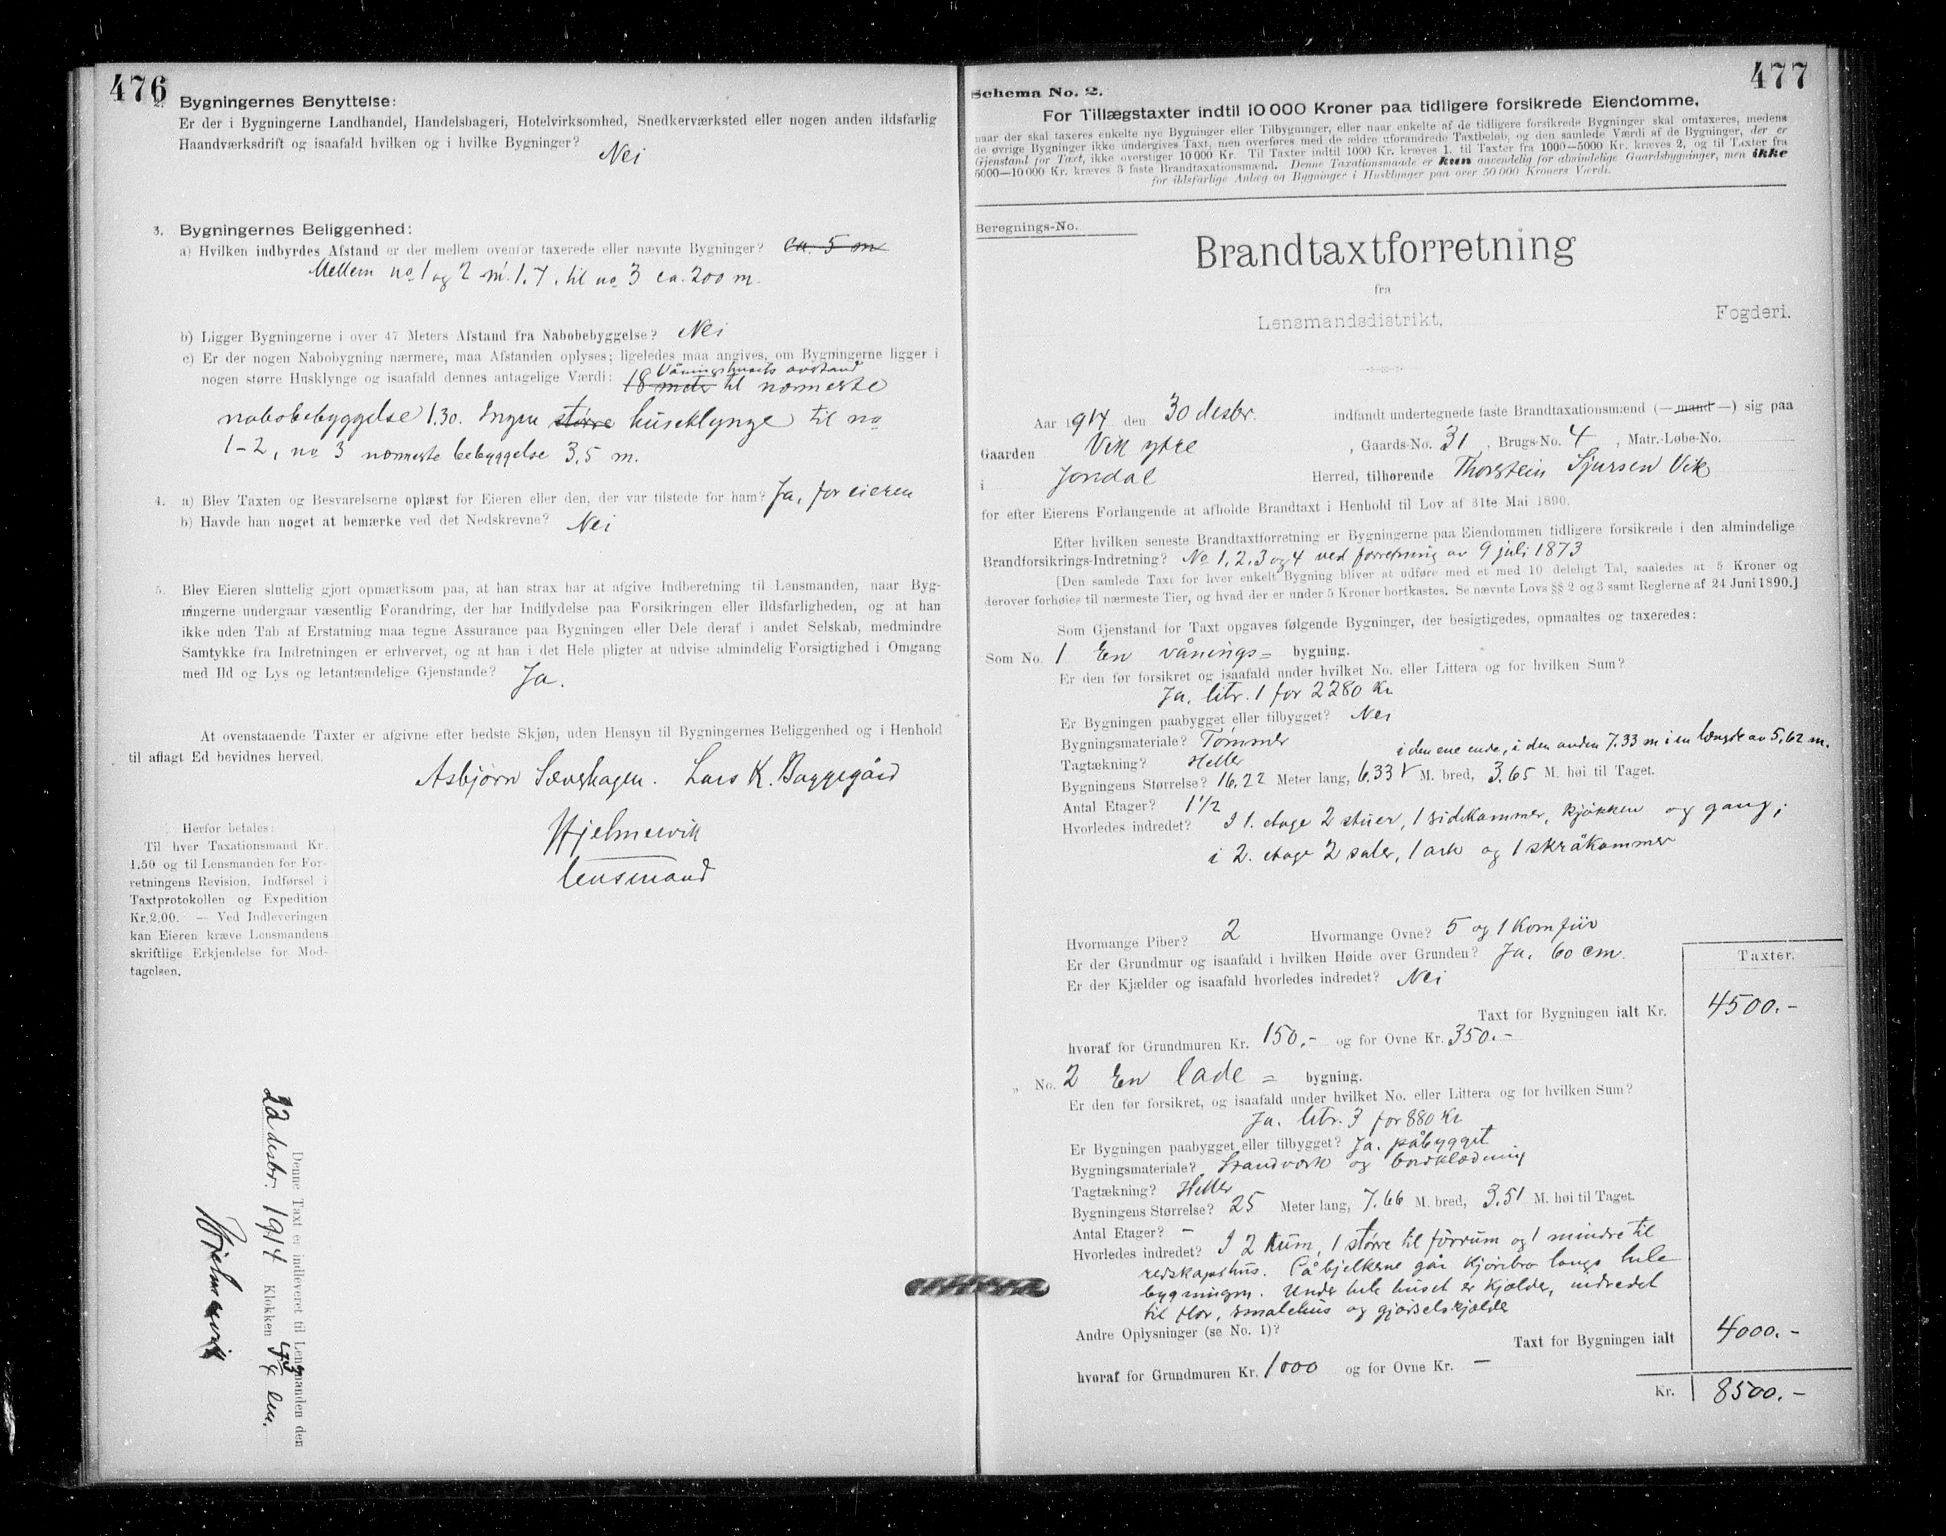 476
2. Bygningernes Benyttelse:
Er der i Bygningerne Landhandel, Handelsbageri, Hotelvirksomhed, Snedkerværksted eller nogen anden ildsfarlig
Haandværksdrift og isaafald hvilken og i hvilke Bygninger?
Nei
3. Bygningernes Beliggenhed:
a) Hvilken indbyrdes Afstand er der mellem ovenfor taxerede eller nævnte Bygninger? ca. 5 m
Mellem no 1 og 2 m. 1.7, til no 3 ca. 200 m.
b) Ligger Bygningerne i over 47 Meters Afstand fra Nabobebyggelse? Nei
c) Er der nogen Nabobygning nærmere, maa Afstanden oplyses; ligeledes maa angives, om Bygningerne ligger i
nogen større Husklynge og isaafald dennes antagelige Værdi: 18 meter Våningshusets avstand til nærmeste
nabobebyggelse 1.30. Ingen større husklynge til no
1-2, no 3 nærmeste bebyggelse 3,5 m.
4. a) Blev Taxten og Besvarelserne oplæst for Eieren eller den, der var tilstede for ham? Ja, for eieren
b) Havde han noget at bemærke ved det Nedskrevne? Nei
5. Blev Eieren sluttelig gjort opmærksom paa, at han strax har at afgive Indberetning til Lensmanden, naar Byg-
ningerne undergaar væsentlig Forandring, der har Indflydelse paa Forsikringen eller Ildsfarligheden, og at han
ikke uden Tab af Erstatning maa tegne Assurance paa Bygningen eller Dele deraf i andet Selskab, medmindre
Samtykke fra Indretningen er erhvervet, og at han i det Hele pligter at udvise almindelig Forsigtighed i Omgang
med Ild og Lys og letantændelige Gjenstande? Ja.
At ovenstaaende Taxter er afgivne efter bedste Skjøn, uden Hensyn til Bygningernes Beliggenhed og i Henhold
til aflagt Ed bevidnes herved.
Asbjørn Sævshagen. Lars K. Baggegård
Hjelmervik
lensmand
Herfor betales:
Til hver Taxationsmand Kr.
1.50 og til Lensmanden for For-
retningens Revision, Indførsel i
Taxtprotokollen og Expedition
Kr. 2.00. — Ved Indleveringen
kan Eieren kræve Lensmandens
skriftlige Erkjendelse for Mod-
tagelsen.
Denne Taxt er indleveret til Lensmanden den
22 desbr. 1914 Klokken
Hjelmervik
477
Schema No. 2.
For Tillægstaxter indtil 10 000 Kroner paa tidligere forsikrede Eiendomme,
naar der skal taxeres enkelte nye Bygninger eller Tilbygninger, eller naar enkelte af de tidligere forsikrede Bygninger skal omtaxeres, medens
de øvrige Bygninger ikke undergives Taxt, men overføres med de ældre uforandrede Taxtbeløb, og den samlede Værdi af de Bygninger, der er
Gjenstand for Taxt, ikke overstiger 10 000 Kr. Til Taxter indtil 1000 Kr. kræves 1, til Taxter fra 1000—5000 Kr. kræves 2, og til Taxter fra
5000—10 000 Kr. kræves 3 faste Brandtaxationsmænd. Denne Taxationsmaade er kun anvendelig for almindelige Gaardsbygninger, men ikke
for ildsfarlige Anlæg og Bygninger i Husklynger paa over 50 000 Kroners Værdi.
Beregnings-No.
Brandtaxtforretning
fra
Lensmandsdistrikt, Fogderi.
Aar 1914 den 30 desbr. indfandt undertegnede faste Brandtaxationsmænd (—mand—) sig paa
Gaarden Vik ytre, Gaards-No. 31, Brugs-No. 4, Matr.-Løbe-No.
i Jondal Herred, tilhørende Thorstein Sjursen Vik
for efter Eierens Forlangende at afholde Brandtaxt i Henhold til Lov af 31te Mai 1890.
Efter hvilken seneste Brandtaxtforretning er Bygningerne paa Eiendommen tidligere forsikrede i den almindelige
Brandforsikrings-Indretning? No 1, 2, 3 og 4 ved forretning av 9 juli 1873
[Den samlede Taxt for hver enkelt Bygning bliver at udføre med et med 10 deleligt Tal, saaledes at 5 Kroner og
derover forhøies til nærmeste Tier, og hvad der er under 5 Kroner bortkastes. Se nævnte Lovs §§ 2 og 3 samt Reglerne af 24 Juni 1890.]
Som Gjenstand for Taxt opgaves følgende Bygninger, der besigtigedes, opmaaltes og taxeredes:
Som No. 1 En vånings= bygning.
Er den før forsikret og isaafald under hvilket No. eller Littera og for hvilken Sum?
Ja, litr. 1 for 2280 kr
Er Bygningen paabygget eller tilbygget? Nei
Bygningsmateriale? Tømmer
i den ene ende, i den anden 7.33 m i en længde av 5,62 m.
Tagtækning? Heller
Bygningens Størrelse? 16,22 Meter lang, 6,33 M. bred, 3,65 M. høi til Taget.
Antal Etager? 1 1/2
Hvorledes indredet? I 1. etage 2 stuer, 1 sidekammer, kjøkken og gang;
i 2. etage 2 saler, 1 ark og 1 skråkammer
Hvormange Piber? 2 Hvormange Ovne? 5 og 1 komfür
Er der Grundmur og isaafald i hvilken Høide over Grunden? Ja, 60 cm.
Er der Kjælder og isaafald hvorledes indredet? Nei
Taxter.
Taxt for Bygningen ialt Kr. 4500.-
hvoraf for Grundmuren Kr. 150.- og for Ovne Kr. 350.-
„ No. 2 En lade = bygning.
Er den før forsikret, og isaafald under hvilket No. eller Littera og for hvilken Sum?
Ja. litr. 3 for 880 kr
Er Bygningen paabygget eller tilbygget? Ja. påbygget
Bygningsmateriale? Standverk og bordklædning
Tagtækning? Heller
Bygningens Størrelse? 25 Meter lang, 7.66 M. bred, 3.51 M. høi til Taget.
Antal Etager? -
Hvorledes indredet? I 2 rum, 1 større til fórrum og 1 mindre til
redskapshus. På bjelkerne går kjørebro langs hele
bygningen. Under hele huset er kjælder, indredet
til flor, smalehus og gjødselskjælder
Andre Oplysninger (se No. 1)?
Taxt for Bygningen ialt 4000.-
hvoraf for Grundmuren Kr. 1000 og for Ovne Kr. —
Kr. 8500.-